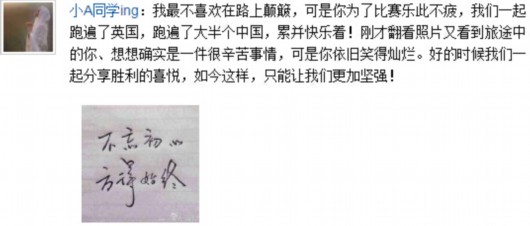 小A同学ing：我最不喜欢在路上颠簸，可是你为了比赛乐此不疲，我们一起
跑遍了英国，跑遍了大半个中国，累并快乐着！刚才翻看照片又看到旅途中
的你、想想确实是一件很辛苦事情，可是你依旧笑得灿烂。好的时候我们一
起分享胜利的喜悦，如今这样，只能让我们更加坚强！
不忘初心
方得始终